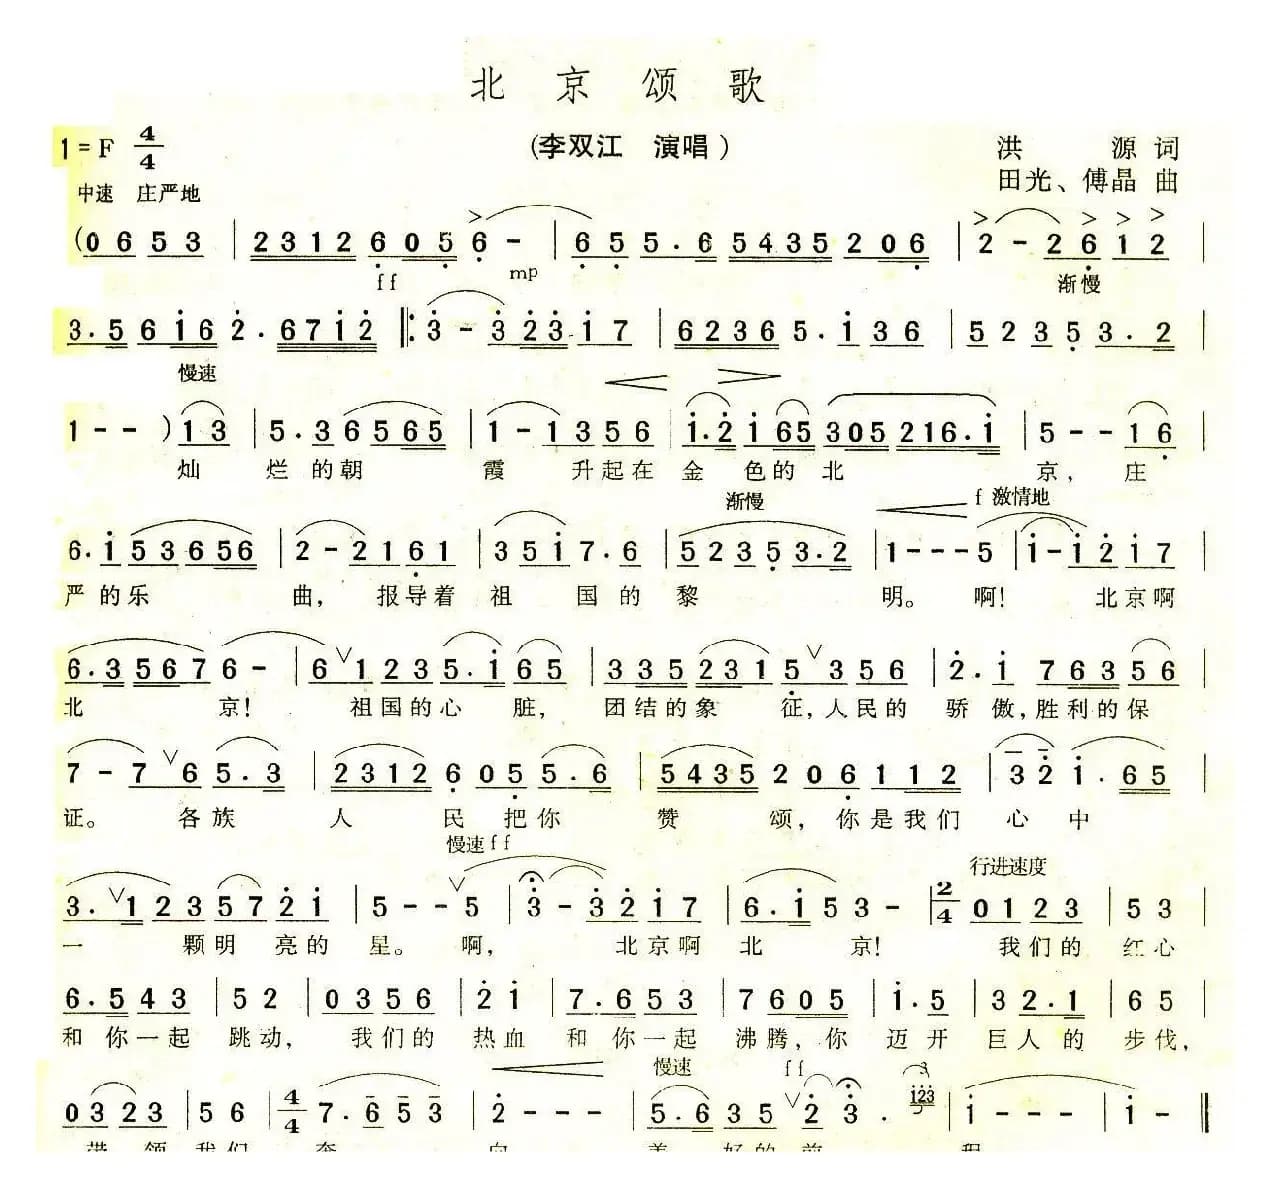 北京颂歌
1=F 4/4
(李双江 演唱)
洪源词
中速 庄严地
田光、傅晶 曲
(0 6 5 3 | 2 3 1 2 6 0 5 6 - | 6 5 5 . 6 5 4 3 5 2 0 6 | 2 - 2 6 1 2
ff mp 渐慢
3 . 5 6 1 6 2 . 6 7 1 2 ‖: 3 - 3 2 3 1 7 | 6 2 3 6 5 . 1 3 6 | 5 2 3 5 3 . 2
慢速
1 - - ) 1 3 | 5 . 3 6 5 6 5 | 1 - 1 3 5 6 | 1 . 2 1 6 5 3 0 5 2 1 6 . 1 | 5 - - 1 6 |
灿 烂 的 朝 霞 升 起 在 金 色 的 北 京, 庄
渐慢 f 激情地
6 . 1 5 3 6 5 6 | 2 - 2 1 6 1 | 3 5 1 7 . 6 | 5 2 3 5 3 . 2 | 1 - - - 5 | 1 - 1 2 1 7 |
严 的 乐 曲, 报 导 着 祖 国 的 黎 明。 啊! 北 京 啊
6 . 3 5 6 7 6 - | 6 ∨ 1 2 3 5 . 1 6 5 | 3 3 5 2 3 1 5 ∨ 3 5 6 | 2 . 1 7 6 3 5 6 |
北 京! 祖 国 的 心 脏, 团 结 的 象 征, 人 民 的 骄 傲, 胜 利 的 保
7 - 7 ∨ 6 5 . 3 | 2 3 1 2 6 0 5 5 . 6 | 5 4 3 5 2 0 6 1 1 2 | 3 2 1 . 6 5 |
证。 各 族 人 民 把 你 赞 颂, 你 是 我 们 心 中
慢速 ff 行进速度
3 . ∨ 1 2 3 5 7 2 1 | 5 - - ∨ 5 | 3 - 3 2 1 7 | 6 . 1 5 3 - | 2/4 0 1 2 3 | 5 3 |
一 颗 明 亮 的 星。 啊, 北 京 啊 北 京! 我 们 的 红 心
6 . 5 4 3 | 5 2 | 0 3 5 6 | 2 1 | 7 . 6 5 3 | 7 6 0 5 | 1 . 5 | 3 2 . 1 | 6 5 |
和 你 一 起 跳 动, 我 们 的 热 血 和 你 一 起 沸 腾, 你 迈 开 巨 人 的 步 伐,
慢速 ff 3
0 3 2 3 | 5 6 | 4/4 7 . 6 5 3 | 2 - - - | 5 . 6 3 5 ∨ 2 3 . 1 2 3 | 1 - - - | 1 - ‖
带 领 我 们 奔 向 美 好 的 前 程